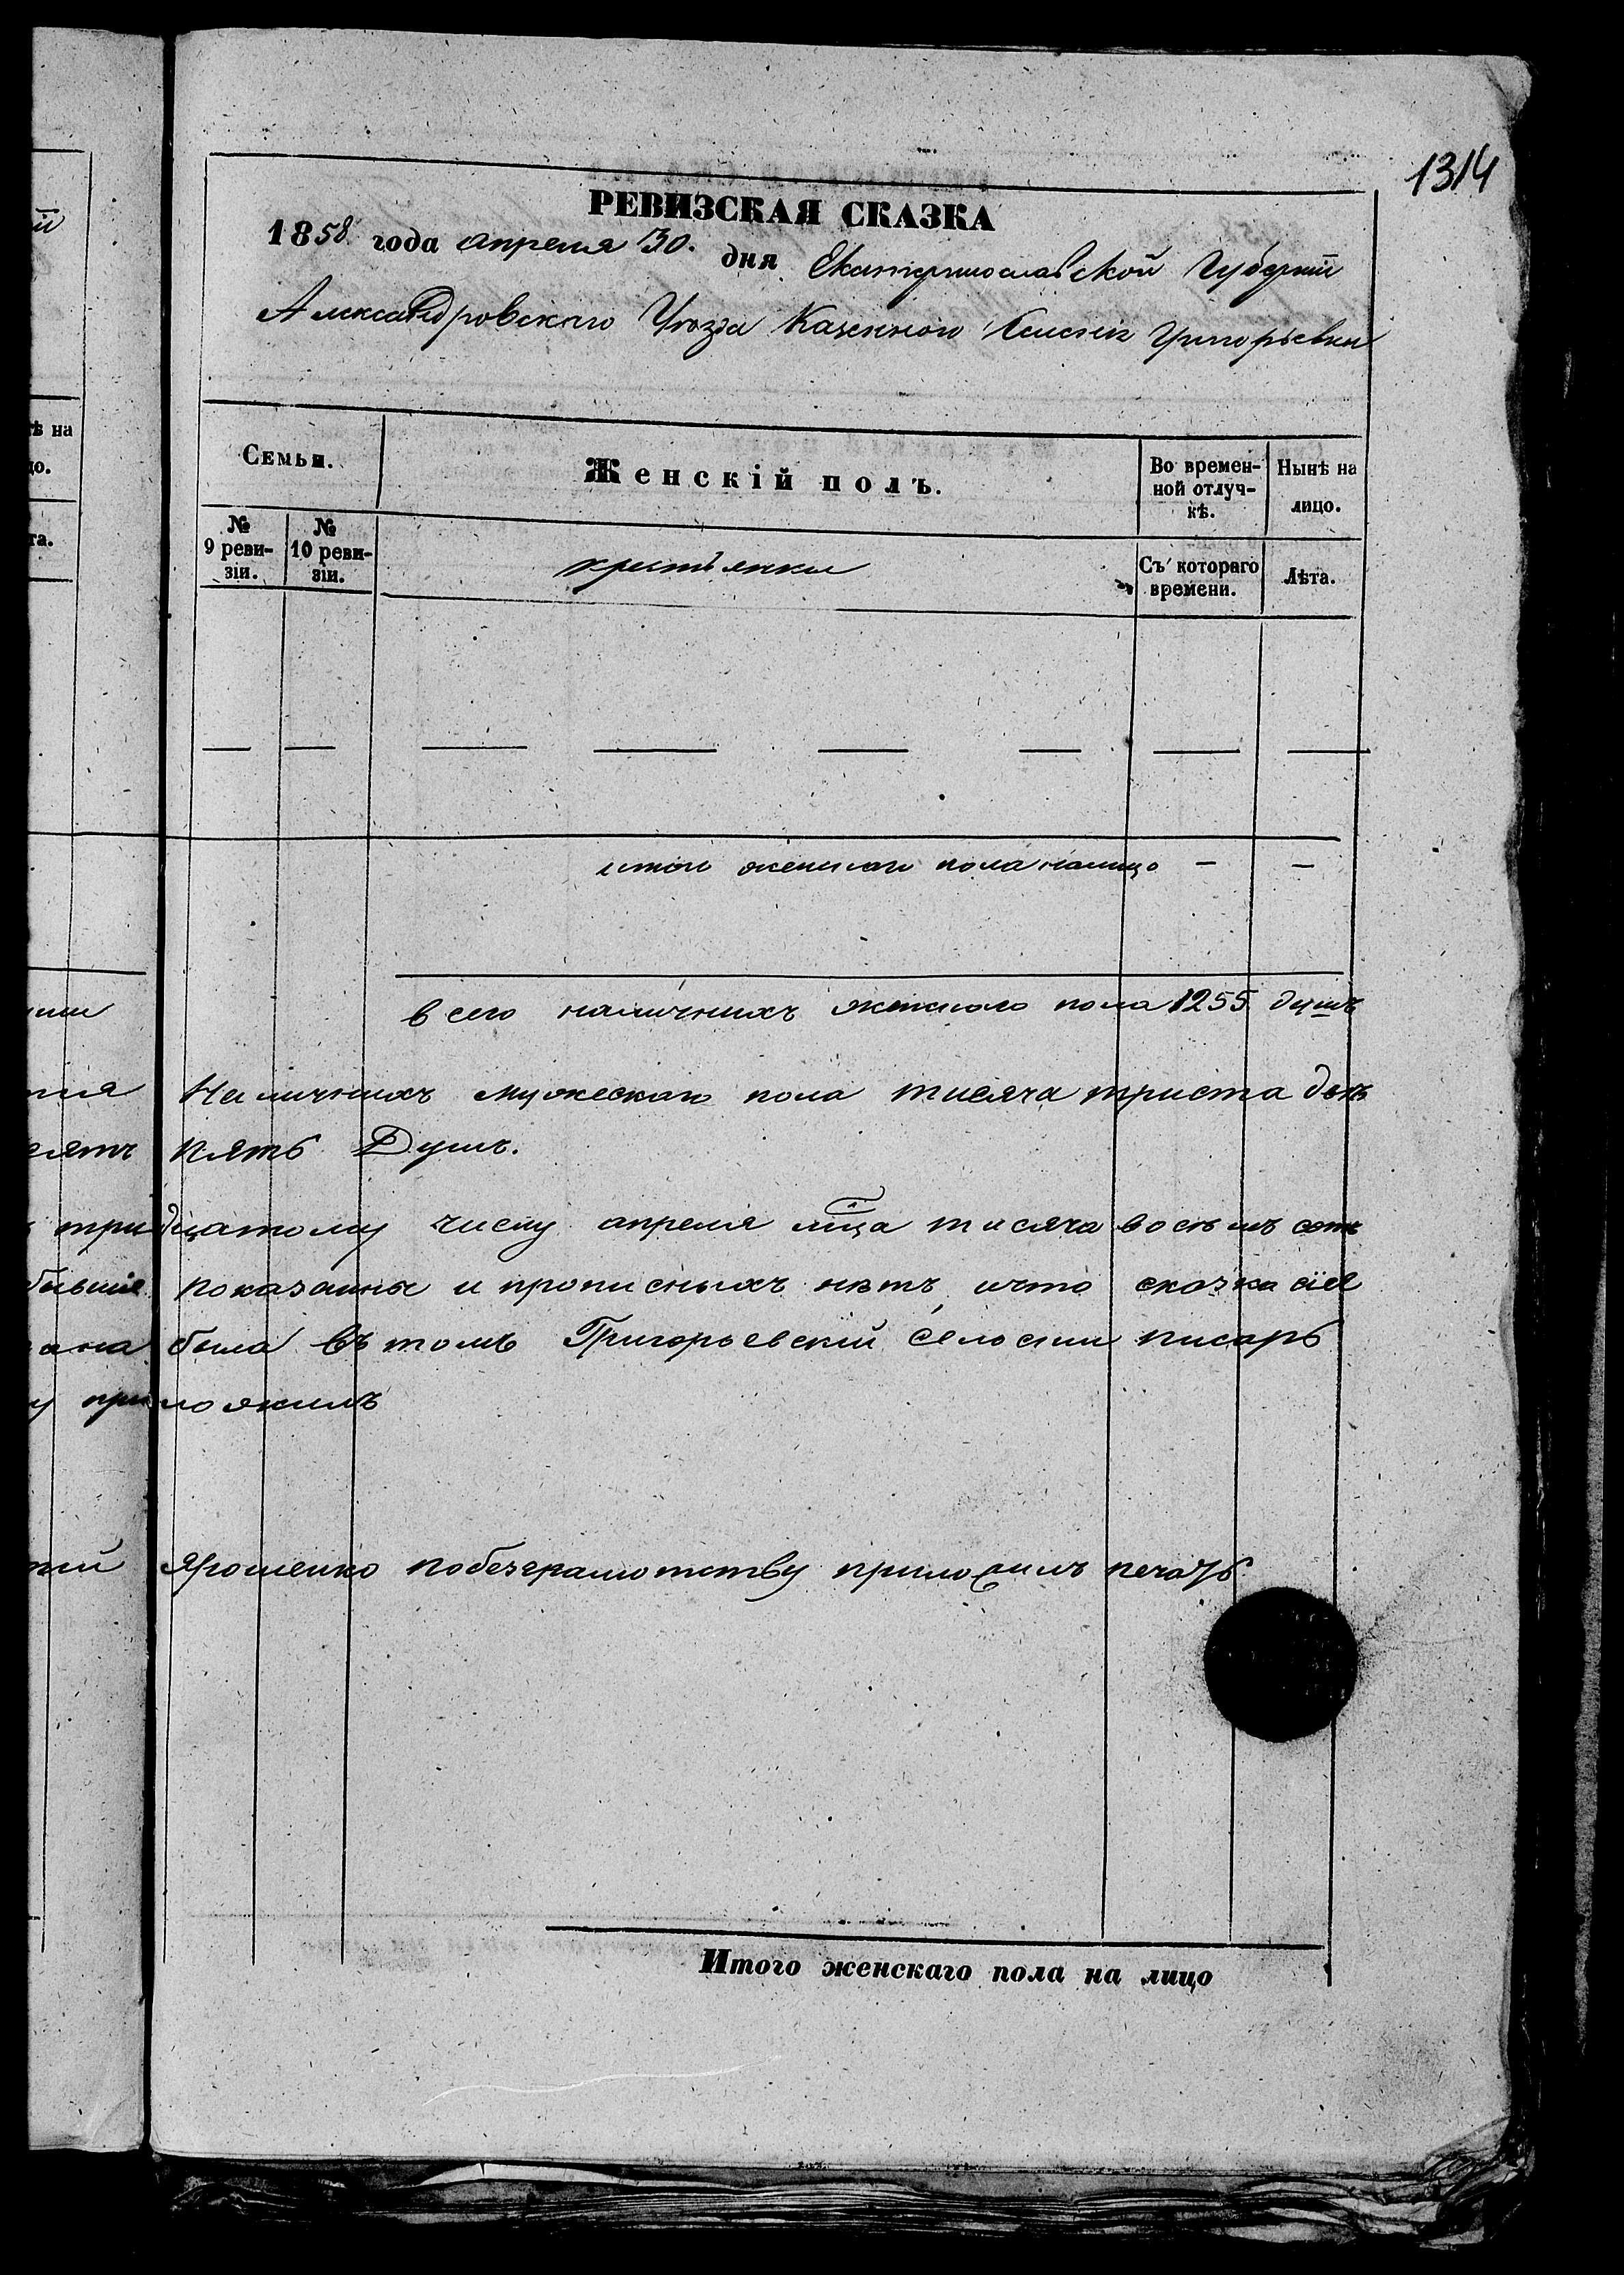 1314
РЕВИЗСКАЯ СКАЗКА
1858 года апреля 30. дня Екатеринославской Губерніи
Александровскаго Уѣзда Казеннаго Селенія Григорьевки
Семьи.
Женскій полъ.
Во времен-
ной отлуч-
кѣ.
Нынѣ на
лицо.
№
9 реви-
зіи.
№
10 реви-
зіи.
крестьянки
Съ котораго
времени.
Лѣта.
итого женскаго пола налицо — —
всего наличнихъ женскаго пола 1255 душъ
Наличнихъ мужескаго пола тисяча триста
пять Душъ.
тридцатому числу апреля мца тисяча восемъ сотъ
бывшіе показанны и прописныхъ нѣтъ ичто сказка сія
была въ томъ Григорьевскій Селскии писарь
приложилъ
Ярошенко побезграмотству приложилъ печать
Итого женскаго пола на лицо
ѣ на